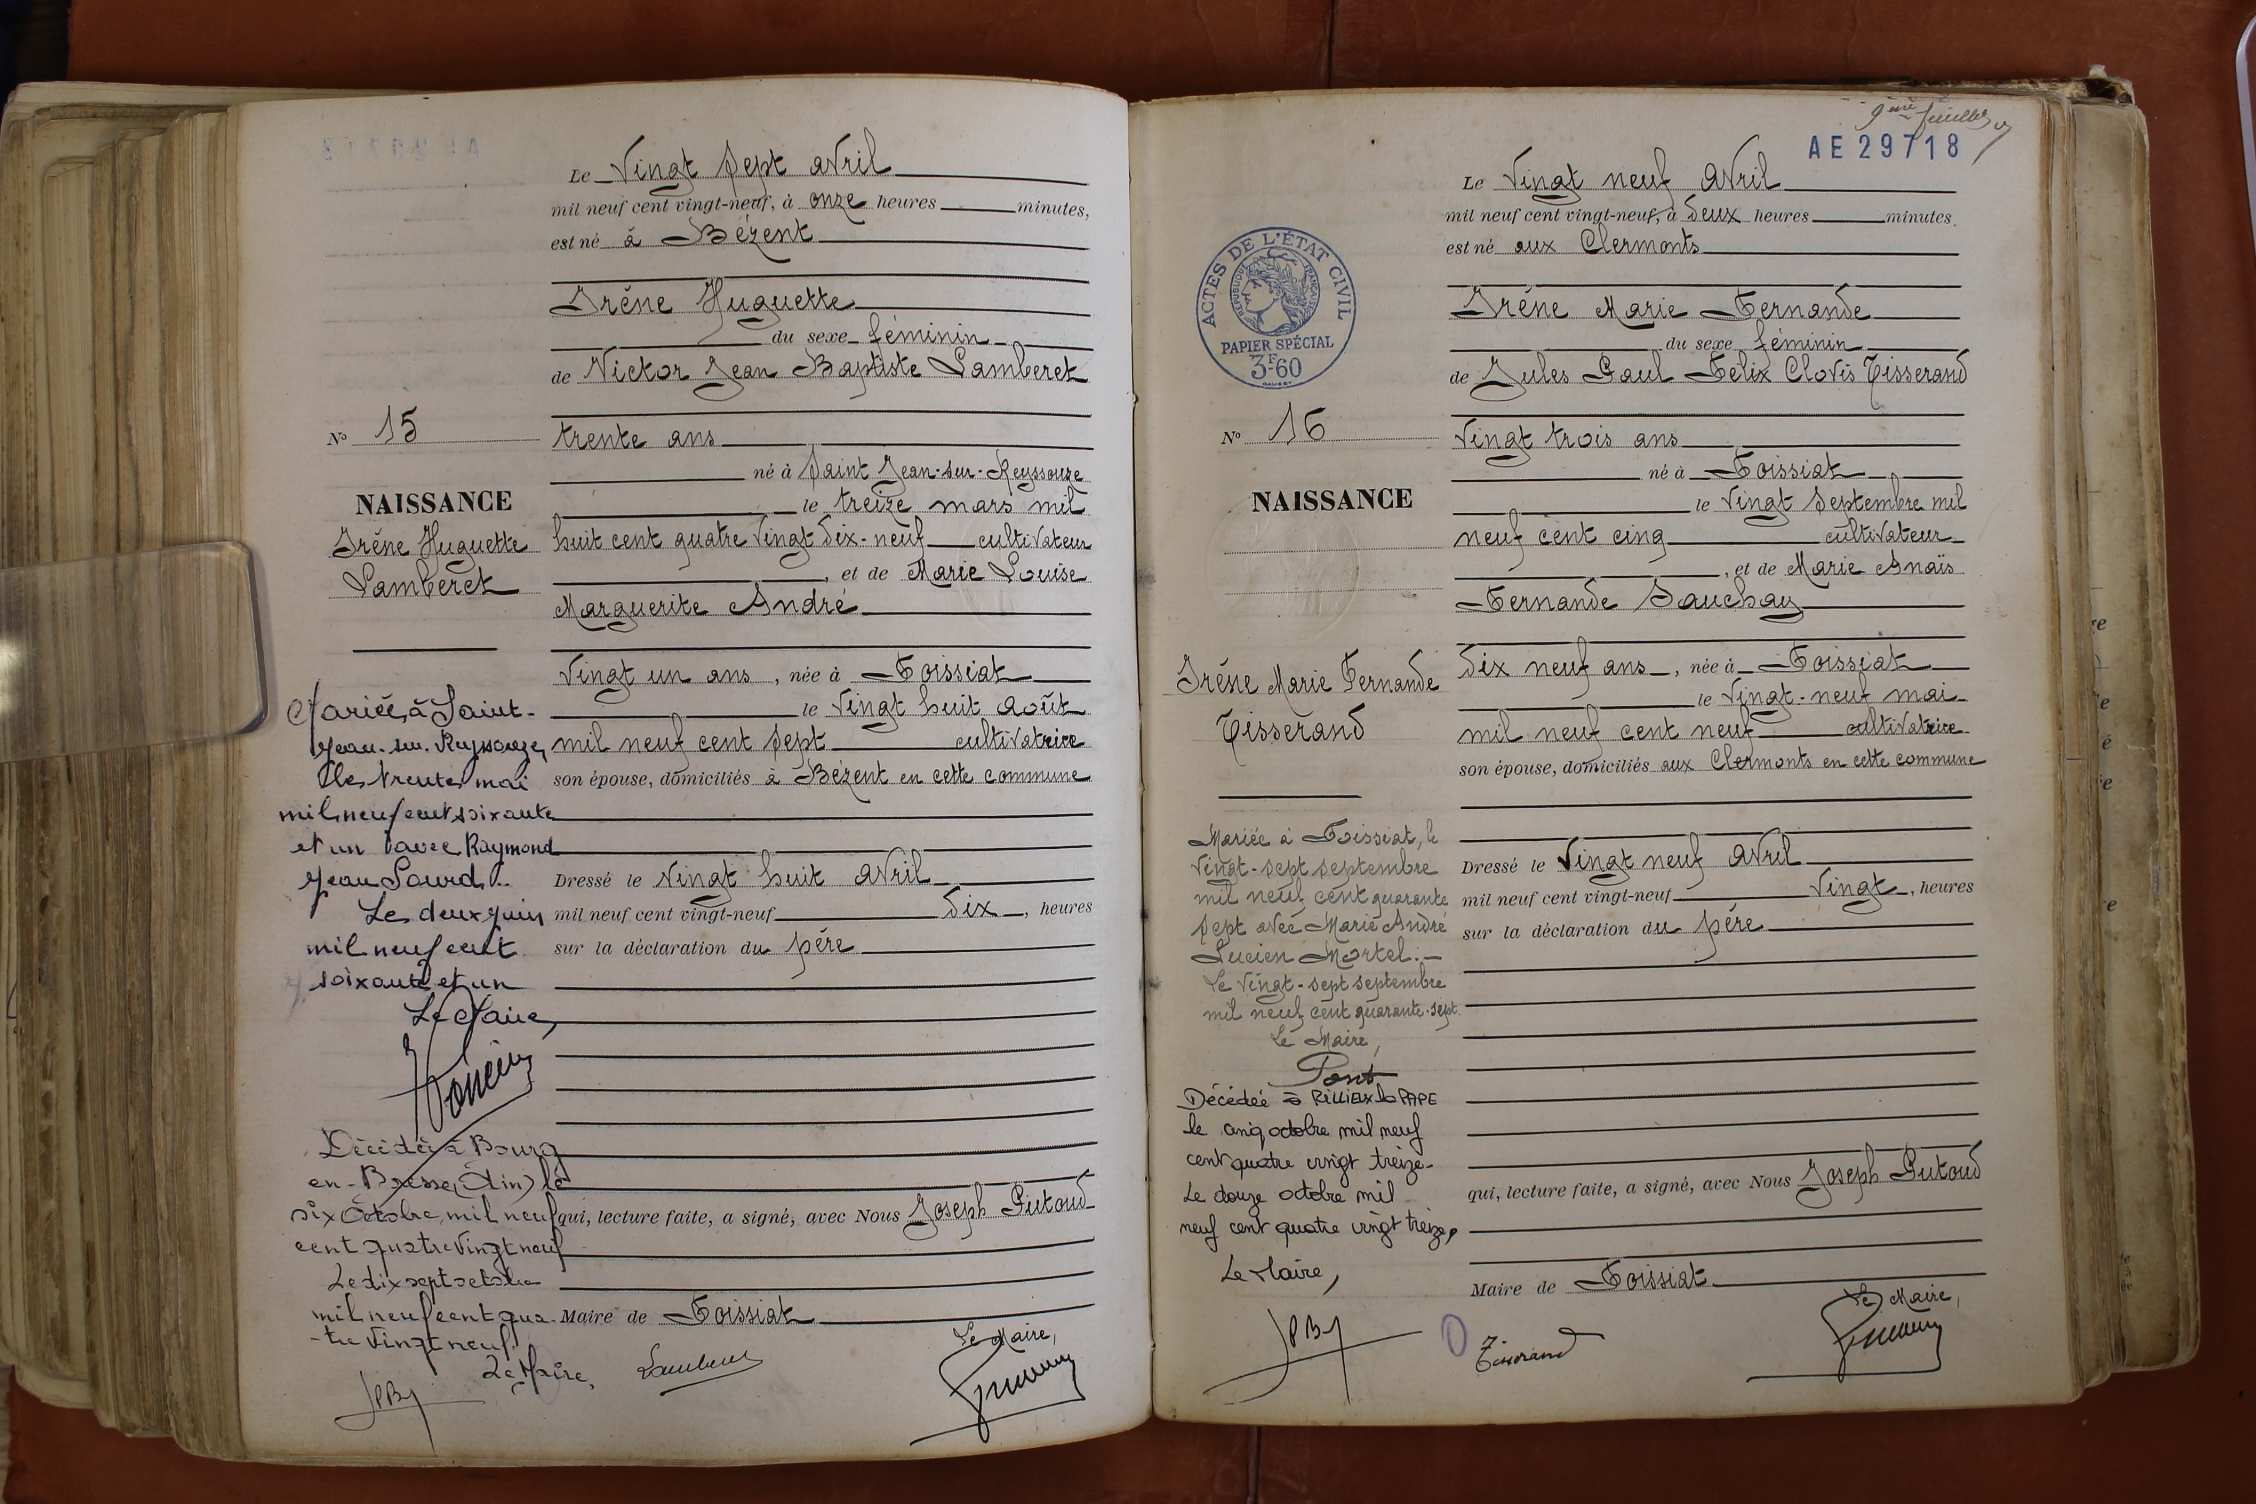 Le Vingt sept avril
mil neuf cent vingt-neuf, à onze heures minutes,
est né à Bézent
Irène Huguette
du sexe féminin
de Victor Jean Baptiste Lamberet
No 15
trente ans
né à Saint Jean-sur-Reyssouze
le treize mars mil
NAISSANCE
Irène Huguette
Lamberet
huit cent quatre vingt dix-neuf cultivateur
, et de Marie Louise
Marguerite André
vingt un ans, née à Foissiat
le vingt huit août
mil neuf cent sept cultivatrice
son épouse, domiciliés à Bézent en cette commune
Dressé le vingt huit avril
mil neuf cent vingt-neuf dix, heures
sur la déclaration du père
qui, lecture faite, a signé, avec Nous Joseph Putoud
Maire de Foissiat
Le Maire,
Mariée à Saint-
Jean-sur-Reyssouze,
le trente mai
mil neuf cent soixante
et un avec Raymond
Jean Sourd.
Le deux juin
mil neuf cent
soixante et un
Le Maire,
Décédée à Bourg
en-Bresse (Ain) le
six Octobre, mil neuf
cent quatre vingt neuf
Le dix sept octobre
mil neuf cent qua-
-tre vingt neuf.
Le Maire,
9ème feuillet
AE 29718
Le Vingt neuf avril
mil neuf cent vingt-neuf, à deux heures minutes.
est né aux Clermonts
ACTES DE L'ÉTAT CIVIL
REPUBLIQUE FRANÇAISE
PAPIER SPÉCIAL
3F.60
Irène Marie Fernande
du sexe féminin
de Jules Paul Félix Clovis Tisserand
No 16
Vingt trois ans
né à Foissiat
le vingt septembre mil
NAISSANCE
neuf cent cinq cultivateur
, et de Marie Anaïs
Fernande Sauchay
Irène Marie Fernande
Tisserand
dix neuf ans, née à Foissiat
le vingt-neuf mai
mil neuf cent neuf cultivatrice
son épouse, domiciliés aux Clermonts en cette commune
Dressé le Vingt neuf avril
mil neuf cent vingt-neuf vingt, heures
sur la déclaration du père
qui, lecture faite, a signé, avec Nous Joseph Putoud
Maire de Foissiat
Le Maire,
Tisserand
Mariée à Foissiat, le
vingt-sept septembre
mil neuf cent quarante
sept avec Marie André
Lucien Mortel.
Le vingt-sept septembre
mil neuf cent quarante-sept.
Le Maire,
Pont
Décédée à RILLIEUX la PAPE
le cinq octobre mil neuf
cent quatre vingt treize.
Le douze octobre mil
neuf cent quatre vingt treize,
Le Maire,